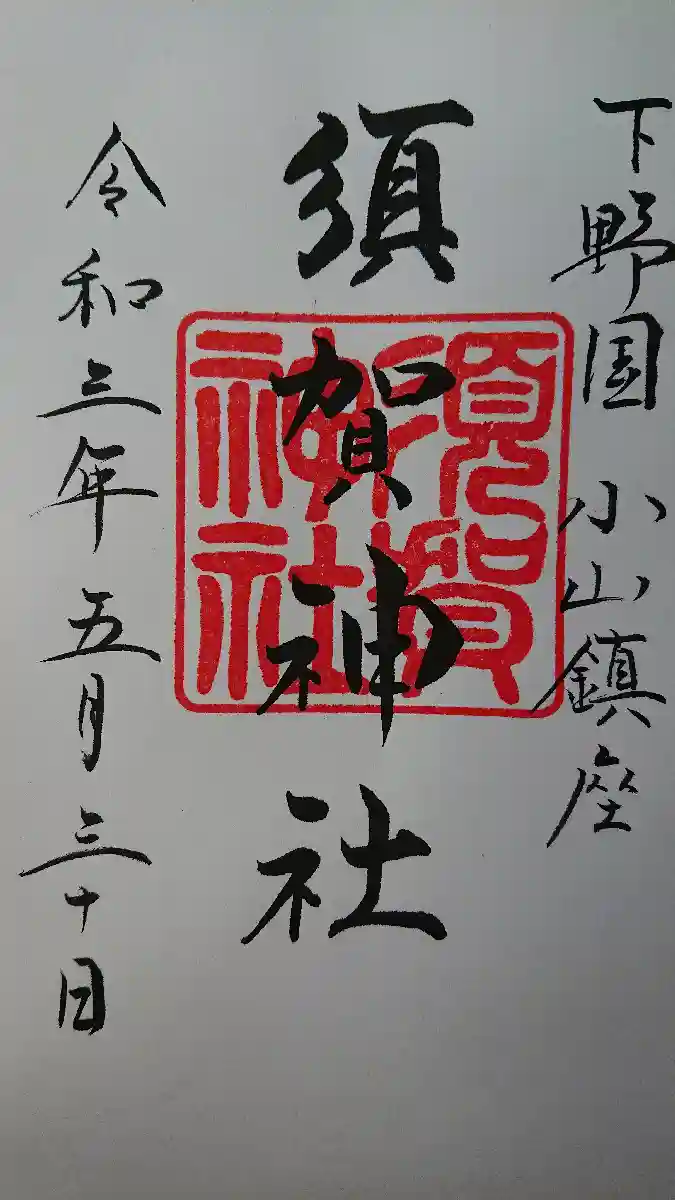 下野国 小山鎮座
須賀神社
須賀
神社
令和三年五月三十日